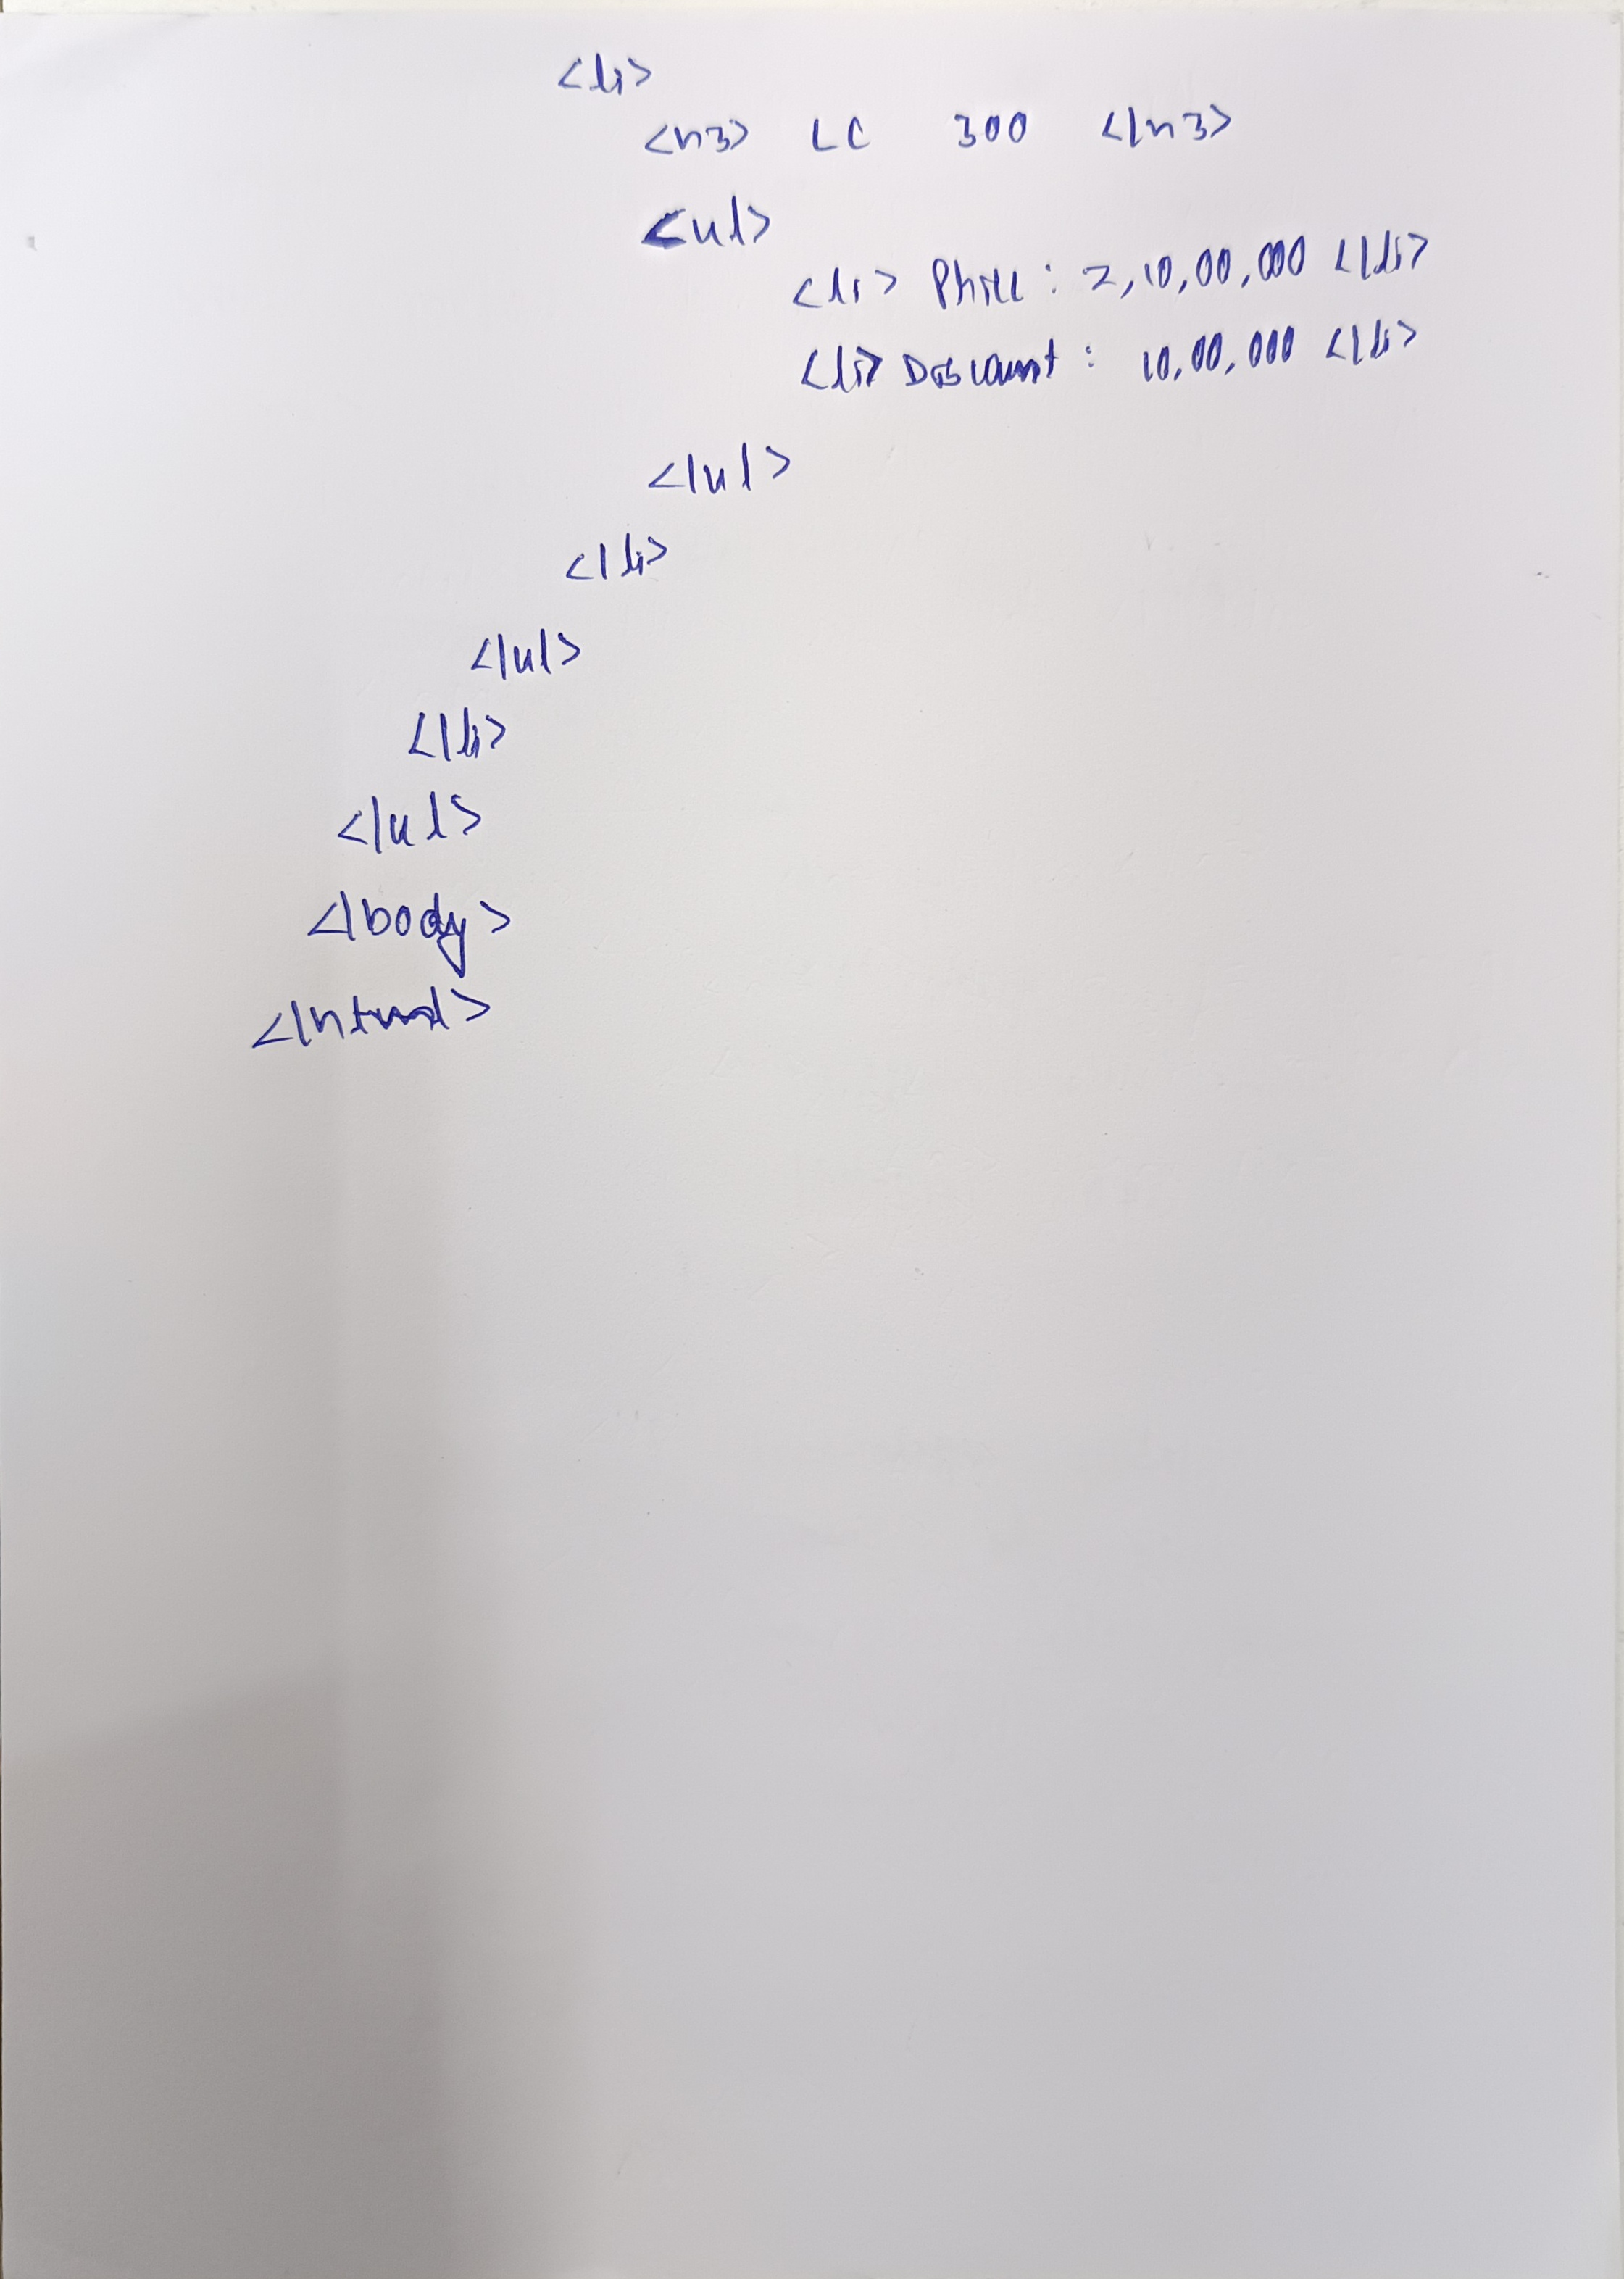 <li>
<h3> LC 300 </h3>
<ul>
<li> Price : 2,10,00,000 </li>
<li> Discount : 10,00,000 </li>
</ul>
</li>
</ul>
</li>
</ul>
</body>
</html>